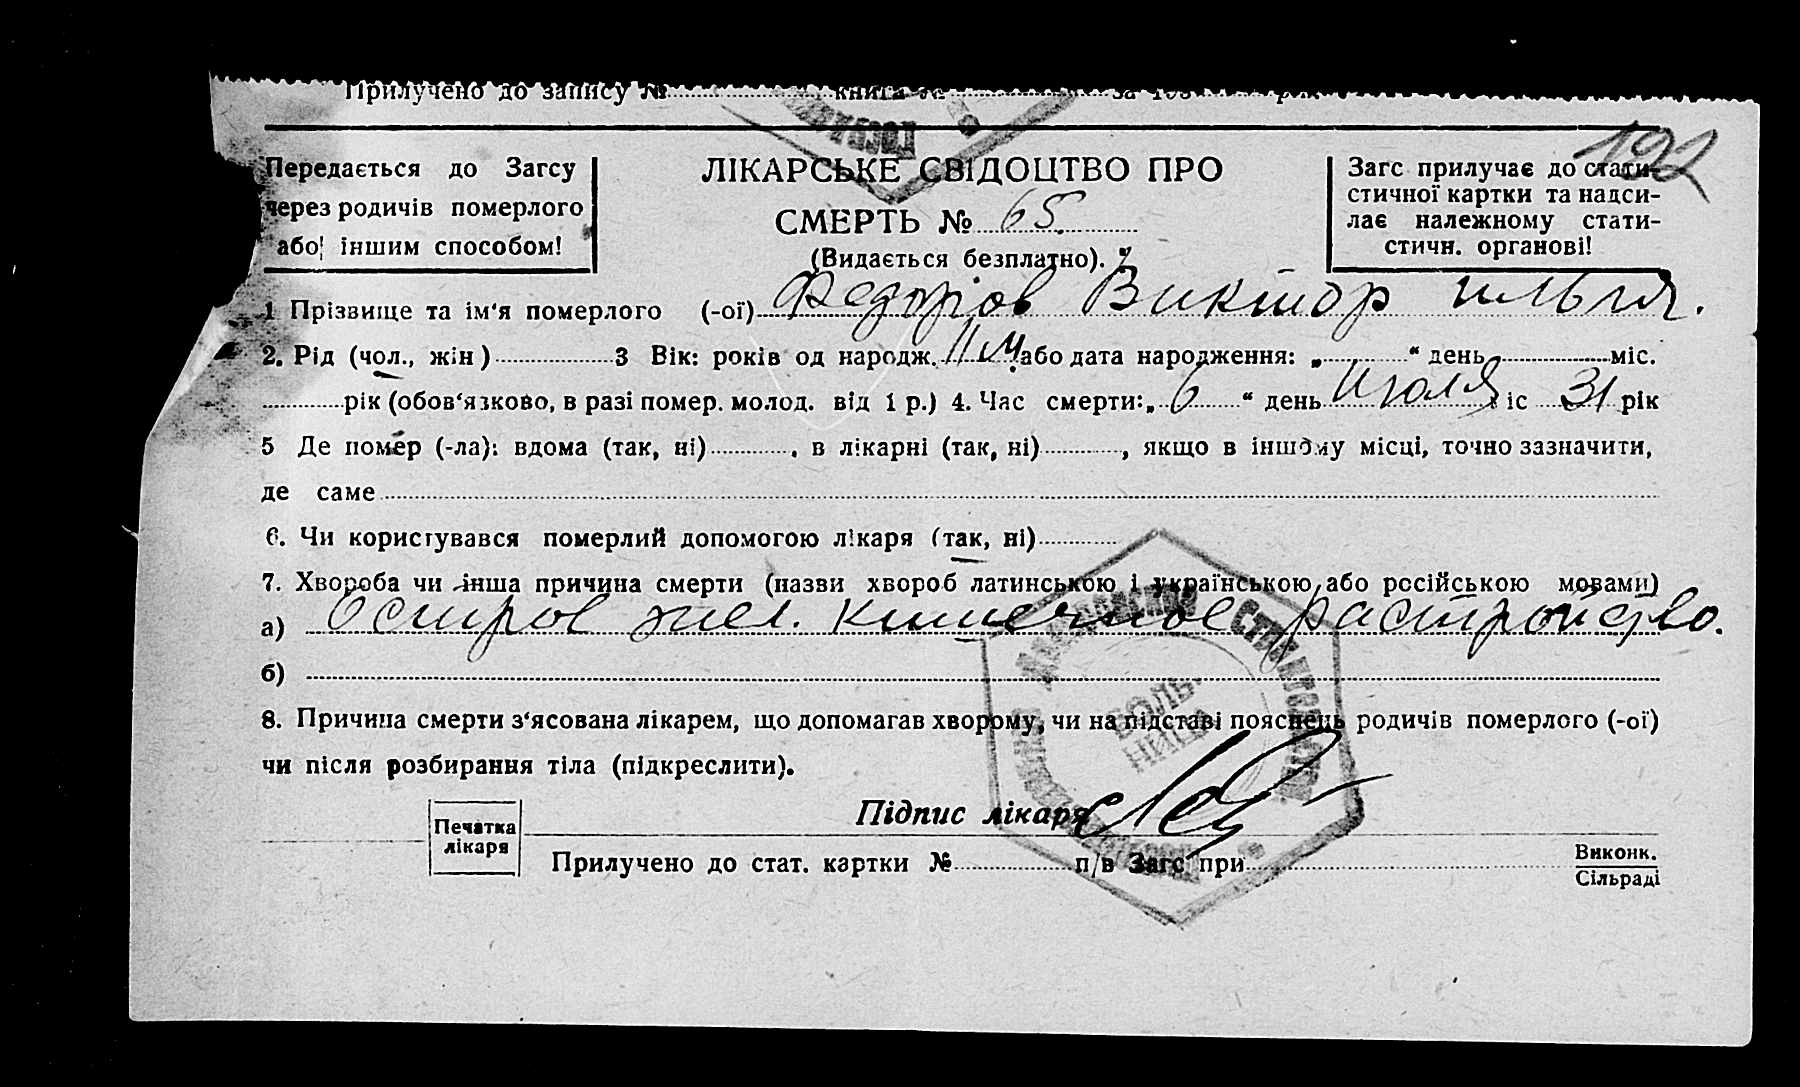 Прилучено до запису №
192
Передається до Загсу
через родичів померлого
або іншим способом!
ЛІКАРСЬКЕ СВІДОЦТВО ПРО
СМЕРТЬ № 65.
(Видається безплатно).
Загс прилучає до стати-
стичної картки та надси-
лає належному стати-
стичн. органові!
1 Прізвище та ім'я померлого (-ої) Федоріов Виктор Илья.
2. Рід (чол., жін) 3 Вік: років од народж. 11 м. або дата народження: „ “ день міс.
рік (обов'язково, в разі помер. молод. від 1 р.) 4. Час смерти: „ 6 “ день Июля іс 31 рік
5 Де помер (-ла): вдома (так, ні) , в лікарні (так, ні) , якщо в іншому місці, точно зазначити,
де саме
6. Чи користувався померлий допомогою лікаря (так, ні)
7. Хвороба чи інша причина смерти (назви хвороб латинською і українською або російською мовами)
а) Остров жел. кишечное растройство.
б)
8. Причина смерти з'ясована лікарем, що допомагав хворому, чи на підставі пояснень родичів померлого (-ої)
чи після розбирання тіла (підкреслити).
БОЛЬ-
НИЦА
Підпис лікаря
Печатка
лікаря
Прилучено до стат. картки № п/в Загс при
Виконк.
Сільраді